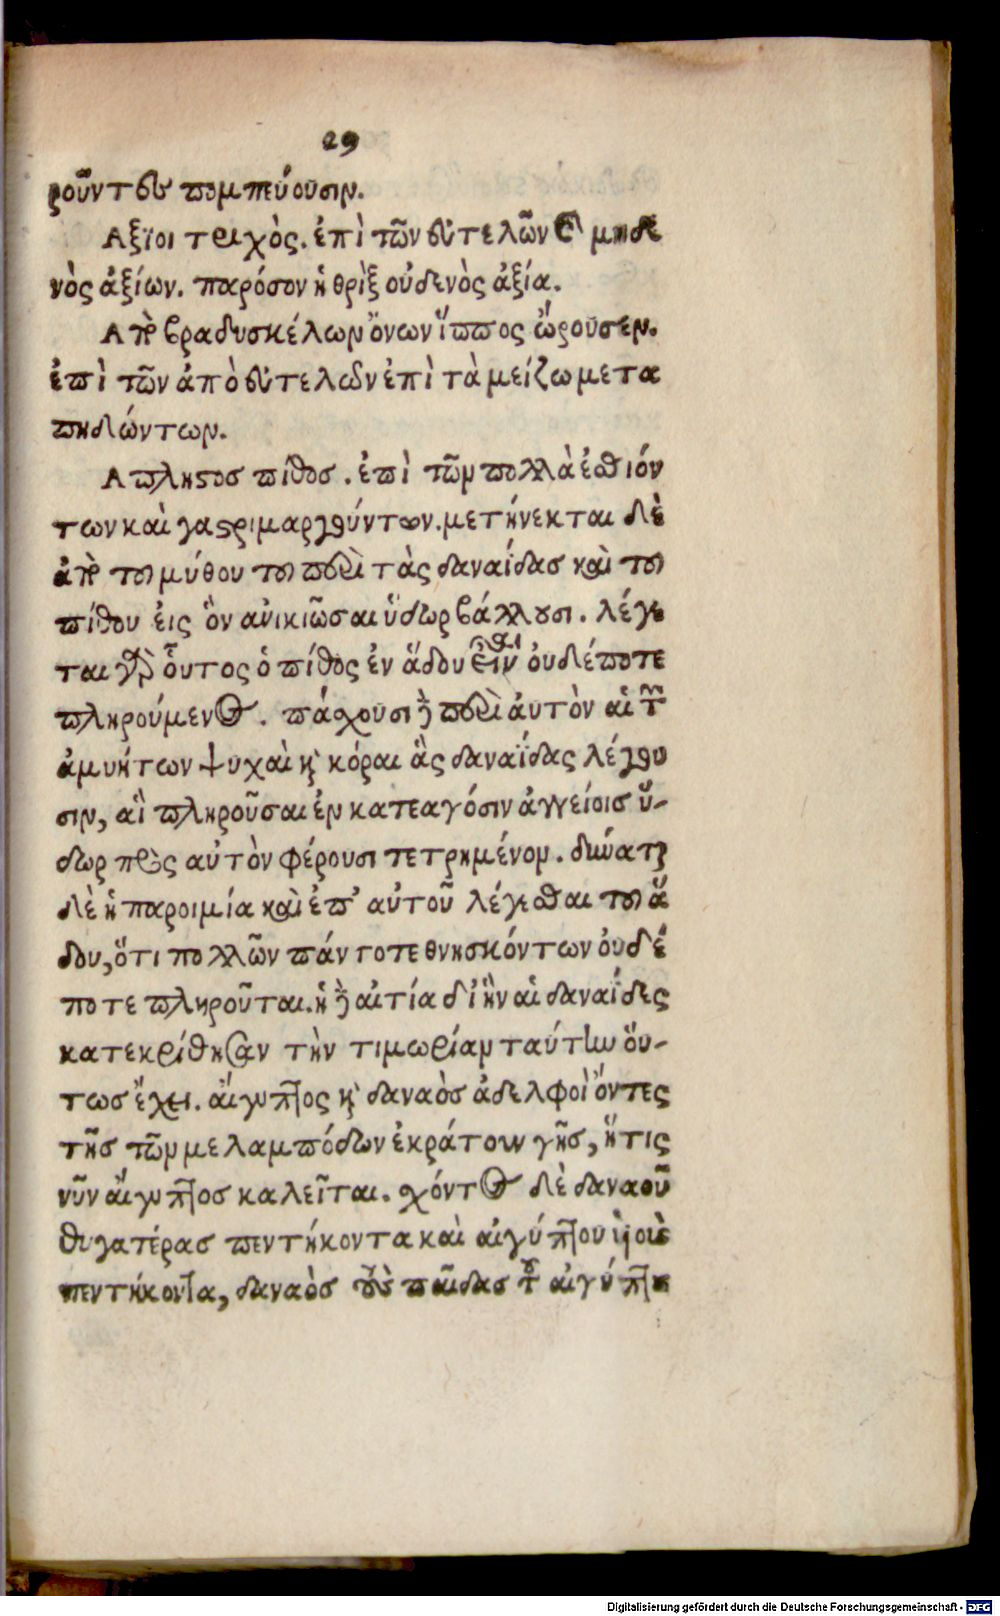 29
ροῦντες πομπεύουσιν.
Αξϊοι τριχὸς. ἐπὶ τῶν εὐτελῶν καὶ μηδε
νὸς ἀξίων. παρόσον ἡ θρὶξ οὐδενὸς ἀξία.
Απὸ βραδυσκέλων ὄνων ἵππος ὤρουσεν.
ἐπὶ τῶν ἀπὸ εὐτελῶν ἐπὶ τὰ μείζω μετα
πηδώντων.
Απληστος πίθος. ἐπὶ τῶν πολλὰ ἐσθιόν
των καὶ γαστριμαργούντων. μετήνεκται δὲ
ἀπὸ τοῦ μύθου τοῦ περὶ τὰς δαναΐδας καὶ τοῦ
πίθου ἐις ὃν ἀνικιῶσαι ὕδωρ βάλλουσι. λέγε
ται γὰρ ὁὗτος ὁ πίθος ἐν ἅδου εἶναι ὀυδέποτε
πληρούμενος. πάσχουσι δὲ περὶ ἀυτὸν αἱ τῶν
ἀμυήτων ψυχαὶ καὶ κόραι ἃς δαναΐδας λέγου
σιν, αἳ πληροῦσαι ἐν κατεαγόσιν ἀγγείοις ὕ-
δωρ πρὸς αὐτὸν φέρουσι τετρημένον. δύναται
δὲ ἡ παροιμία καὶ ἐπ' αὐτοῦ λέγεσθαι τοῦ ἅ
δου, ὅτι πολλῶν πάντοτε θνησκόντων ὀυδέ
ποτε πληροῦται. ἡ δὲ αἰτία δι' ἣν αἱ δαναΐδες
κατεκρίθησαν τὴν τιμωρίαν ταύτην ὅυ-
τως ἔχει. αἴγυπτος καὶ δαναὸς ἀδελφοὶ ὄντες
τῆς τῶν μελαμπόδων ἐκράτουν γῆς, ἥτις
νῦν αἴγυπτος καλεῖται. σχόντος δὲ δαναοῦ
θυγατέρας πεντήκοντα καὶ αἰγύπτου υἱοὺς
πεντήκοντα, δαναὸς τοὺς παῖδας τοῦ αἰγύπτου